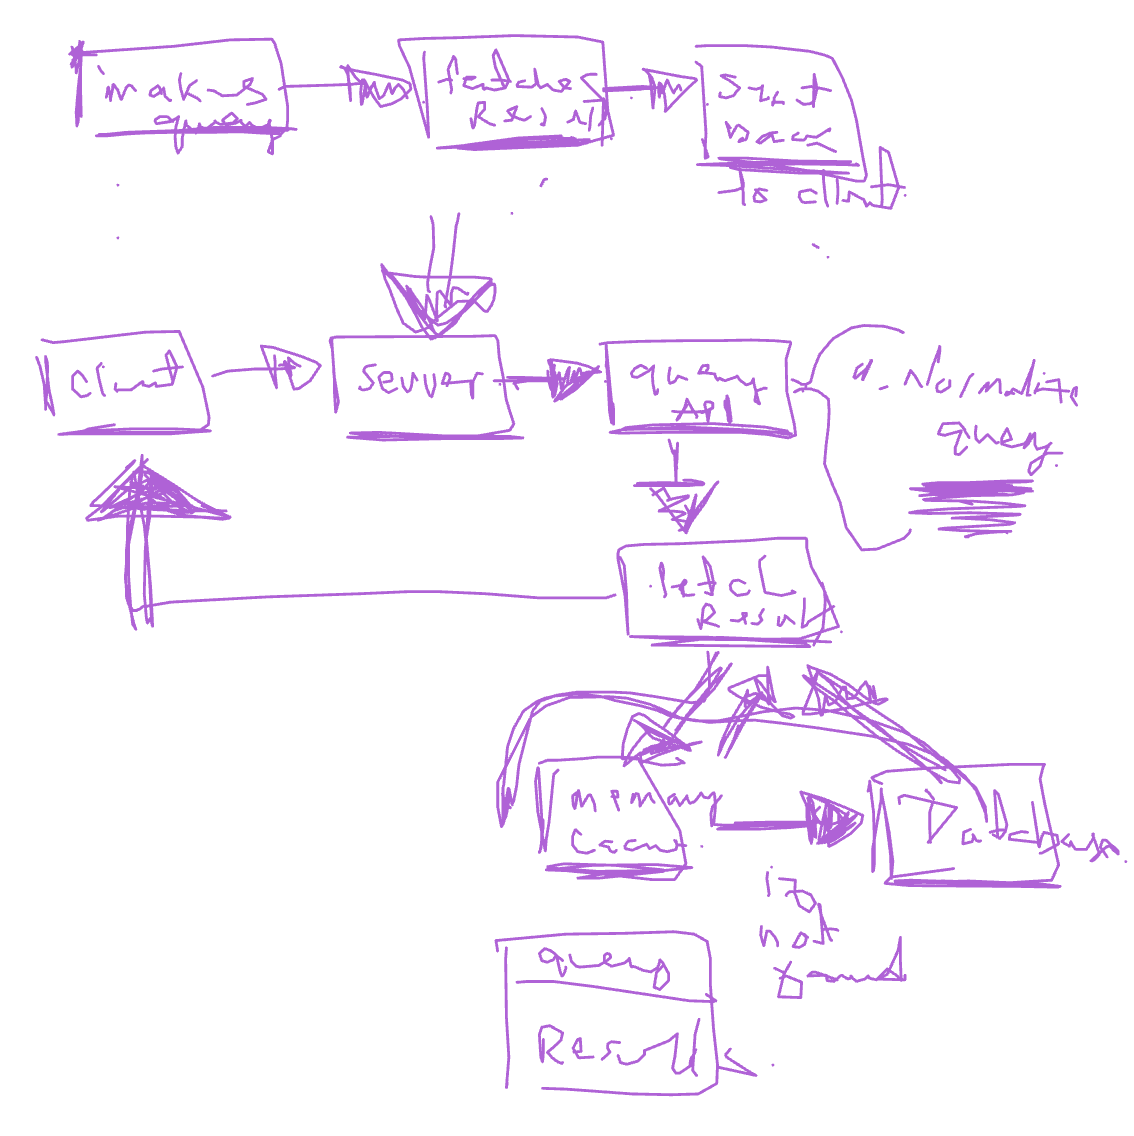 makes
query
fetches
Result
sent
back
to client
client
server
query
API
a. Normalize
query
fetch
Result
memory
Database
if
not
found
query
Result